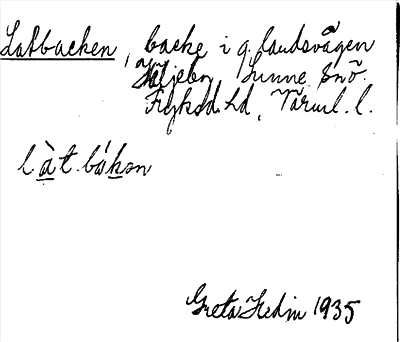 Latbacken, backe i g. landsvägen
Sunne snö.
Fryksd. hd, Värml. l.
làt. bákən
Greta Hedin 1935